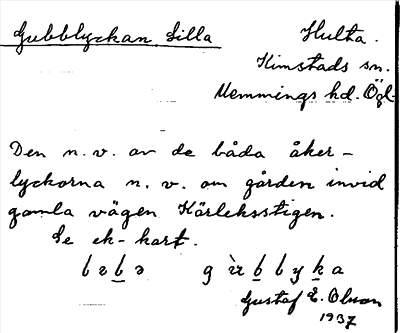 Gubblyckan, Lilla Hulta.
Kimstads sn.
Memmings hd. Ögl.
Den n. v. av de båda åker-
lyckorna n. v. om gården invid
gamla vägen Kärleksstigen.
Se ek-kart.
Gustaf E. Olsson
1937